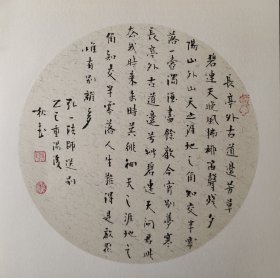 長亭外古道邊芳草
碧連天晚風拂柳笛聲殘夕
陽山外山天之涯地之角知交半零
落一壺濁酒盡餘歡今宵別夢寒
長亭外古道邊芳草碧連天問君此
去幾時來來時莫徘徊天之涯地之
角知交半零落人生難得是歡聚
惟有別離多
弘一法師送別